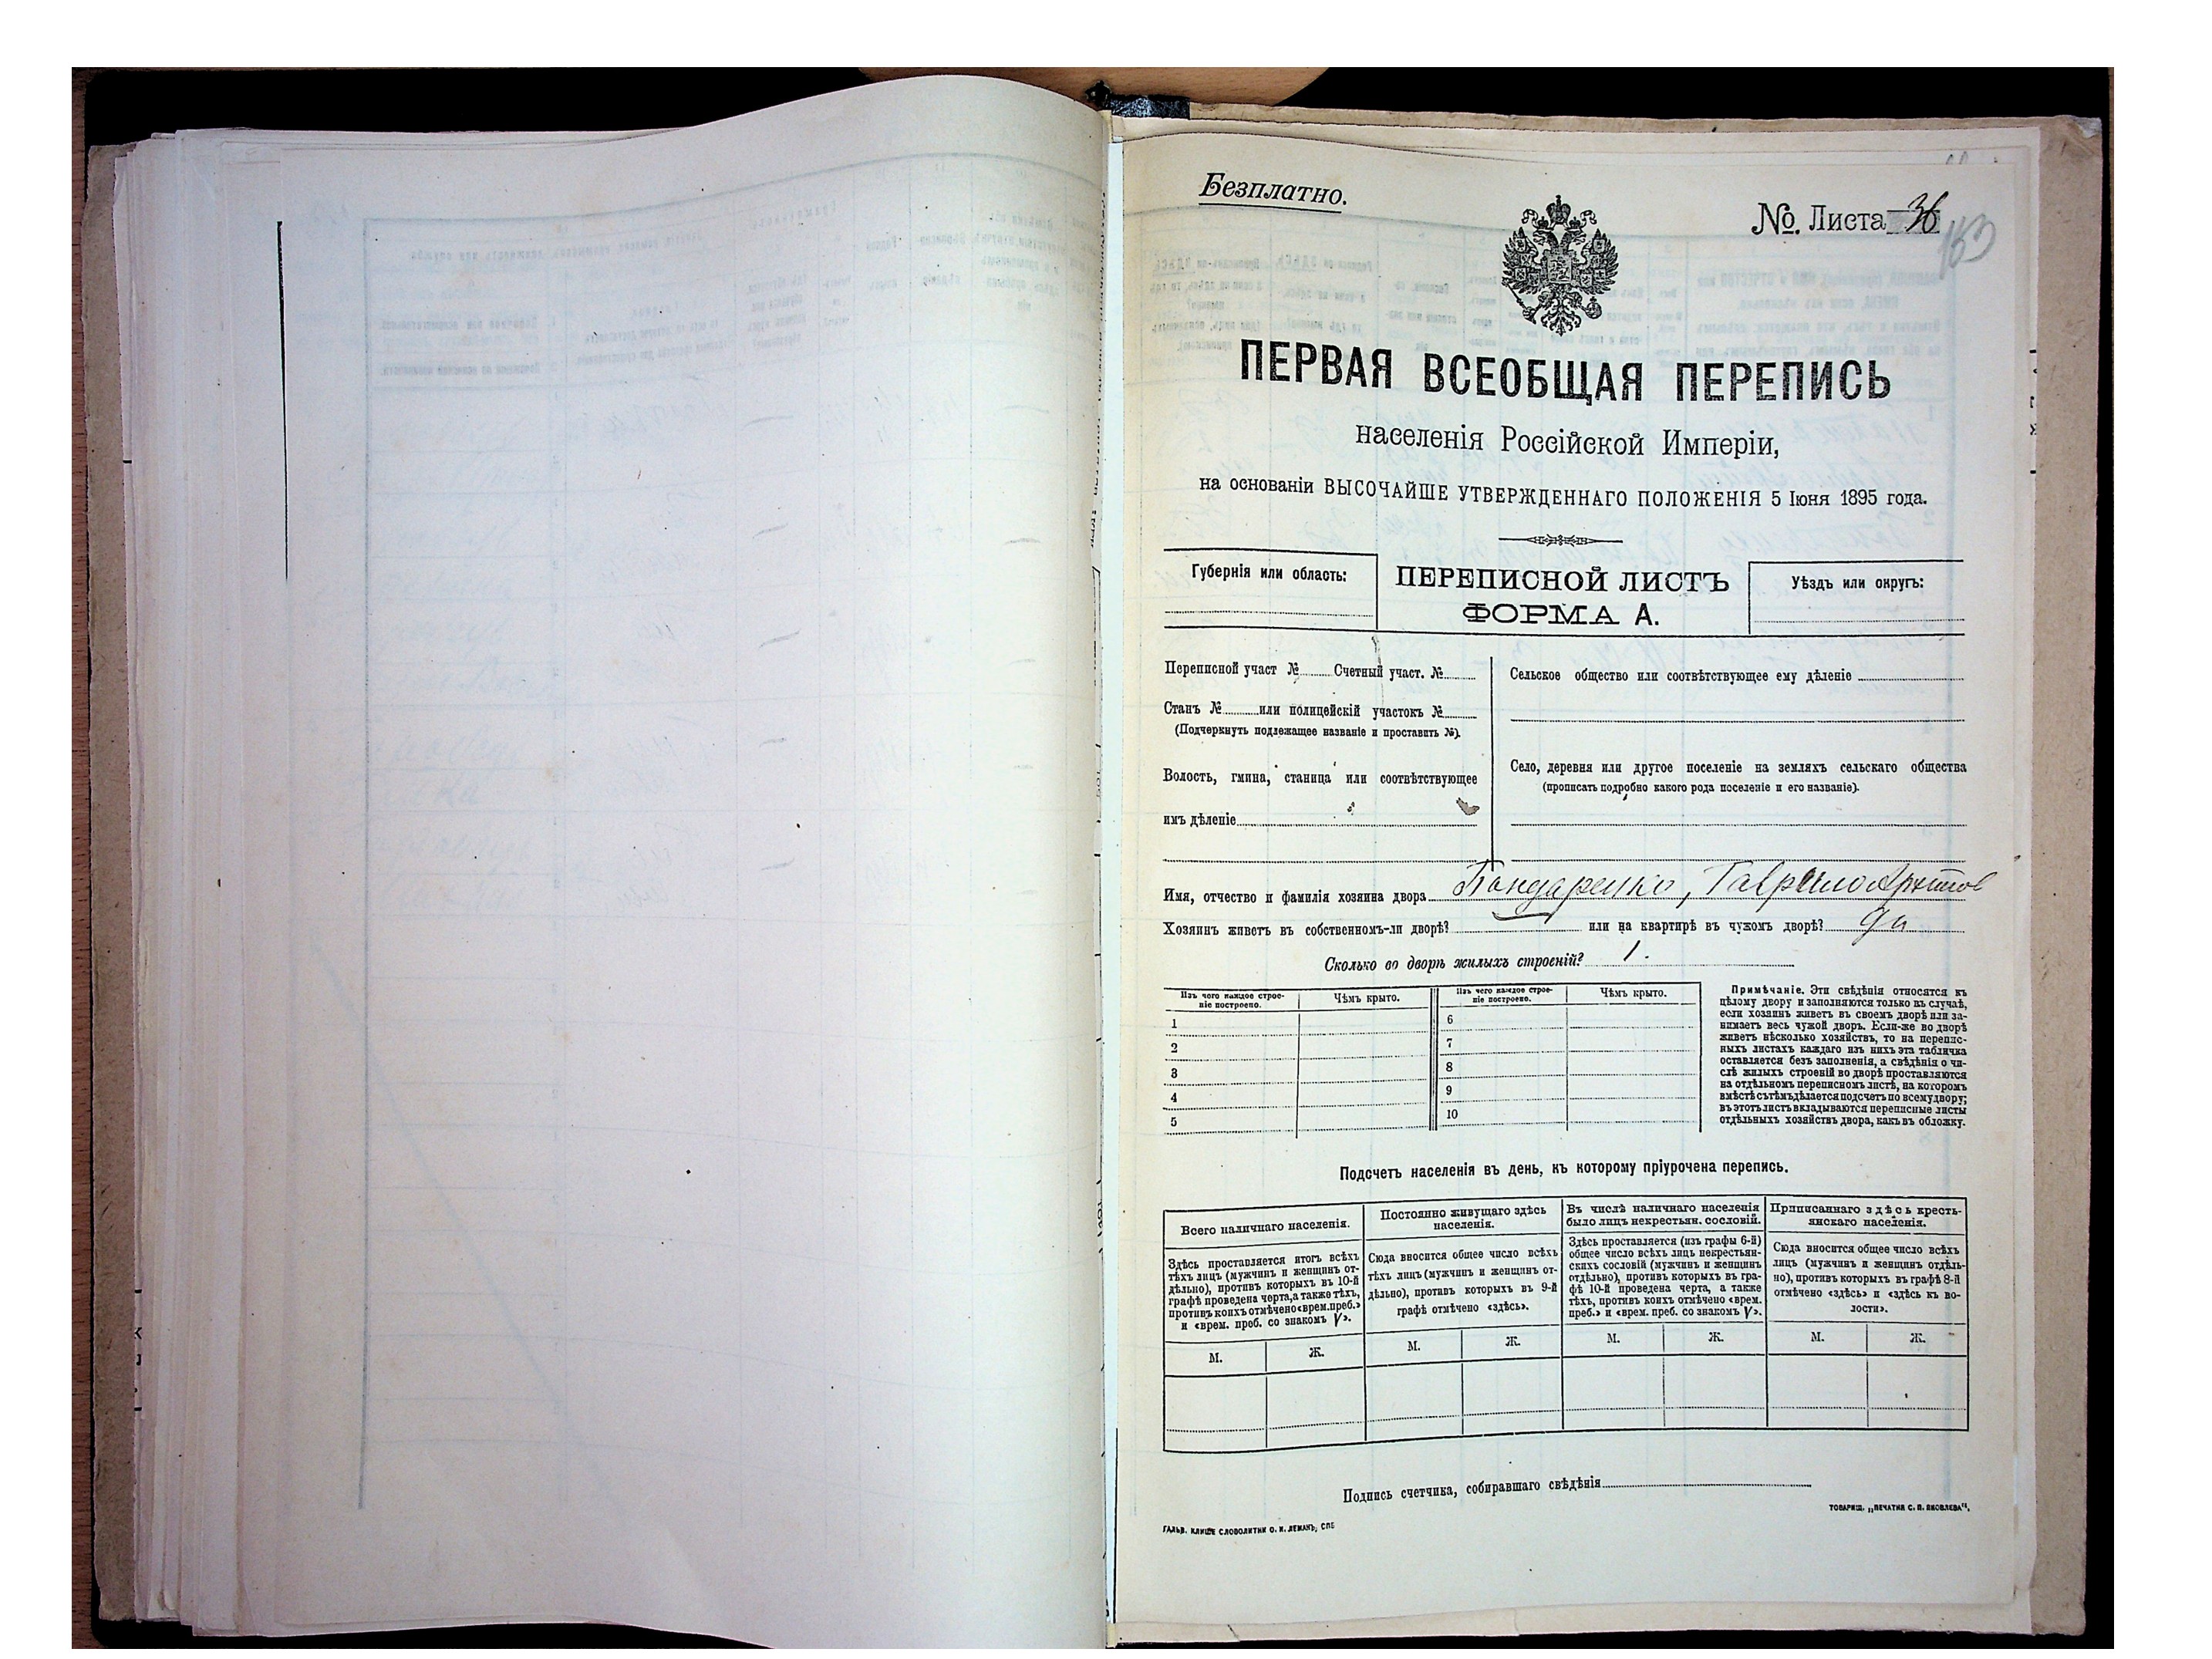 Безплатно.
№. Листа 36
153
ПЕРВАЯ ВСЕОБЩАЯ ПЕРЕПИСЬ
населенія Россійской Имперіи,
на основаніи ВЫСОЧАЙШЕ УТВЕРЖДЕННАГО ПОЛОЖЕНІЯ 5 Іюня 1895 года.
Губернія или область:
ПЕРЕПИСНОЙ ЛИСТЪ
ФОРМА А.
Уѣздъ или округъ:
Переписной участ № Счетный участ. №
Станъ № или полицейскій участокъ №
(Подчеркнуть подлежащее названіе и проставить №).
Волость, гмина, станица или соотвѣтствующее
имъ дѣленіе
Сельское общество или соотвѣтствующее ему дѣленіе
Село, деревня или другое поселеніе на земляхъ сельскаго общества
(прописать подробно какого рода поселеніе и его названіе).
Имя, отчество и фамилія хозяина двора Бондаренко, Гаврило
Хозяинъ живетъ въ собственномъ-ли дворѣ? или на квартирѣ въ чужомъ дворѣ? да
Сколько во дворѣ жилыхъ строеній? 1.
Изъ чего каждое строе-
ніе построено.
Чѣмъ крыто.
Изъ чего каждое строе-
ніе построено.
Чѣмъ крыто.
1
2
3
4
5
6
7
8
9
10
Примѣчаніе. Эти свѣдѣнія относятся къ
цѣлому двору и заполняются только въ случаѣ,
если хозяинъ живетъ въ своемъ дворѣ или за-
нимаетъ весь чужой дворъ. Если-же во дворѣ
живетъ нѣсколько хозяйствъ, то на перепис-
ныхъ листахъ каждаго изъ нихъ эта табличка
оставляется безъ заполненія, а свѣдѣнія о чи-
слѣ жилыхъ строеній во дворѣ проставляются
на отдѣльномъ переписномъ листѣ, на которомъ
вмѣстѣ съ тѣмъ дѣлается подсчетъ по всему двору;
въ этотъ листъ вкладываются переписные листы
отдѣльныхъ хозяйствъ двора, какъ въ обложку.
Подсчетъ населенія въ день, къ которому пріурочена перепись.
Всего наличнаго населенія.
Здѣсь проставляется итогъ всѣхъ
тѣхъ лицъ (мужчинъ и женщинъ от-
дѣльно), противъ которыхъ въ 10-й
графѣ проведена черта, а также тѣхъ,
противъ коихъ отмѣчено «врем. преб.»
и «врем. преб. со знакомъ V».
Постоянно живущаго здѣсь
населенія.
Сюда вносится общее число всѣхъ
тѣхъ лицъ (мужчинъ и женщинъ от-
дѣльно), противъ которыхъ въ 9-й
графѣ отмѣчено «здѣсь».
Въ числѣ наличнаго населенія
было лицъ некрестьян. сословій.
Здѣсь проставляется (изъ графы 6-й)
общее число всѣхъ лицъ некрестьян-
скихъ сословій (мужчинъ и женщинъ
отдѣльно), противъ которыхъ въ гра-
фѣ 10-й проведена черта, а также
тѣхъ, противъ коихъ отмѣчено «врем.
преб.» и «врем. преб. со знакомъ V».
Приписаннаго здѣсь кресть-
янскаго населенія.
Сюда вносится общее число всѣхъ
лицъ (мужчинъ и женщинъ отдѣль-
но), противъ которыхъ въ графѣ 8-й
отмѣчено «здѣсь» и «здѣсь къ во-
лости».
М. Ж. М. Ж. М. Ж. М. Ж.
Подпись счетчика, собиравшаго свѣдѣнія
ТОВАРИЩ. „ПЕЧАТНЯ С. П. ЯКОВЛЕВА“.
ГАЛЬВ. КЛИШЕ СЛОВОЛИТНИ О. И. ЛЕМАНЪ, СПБ